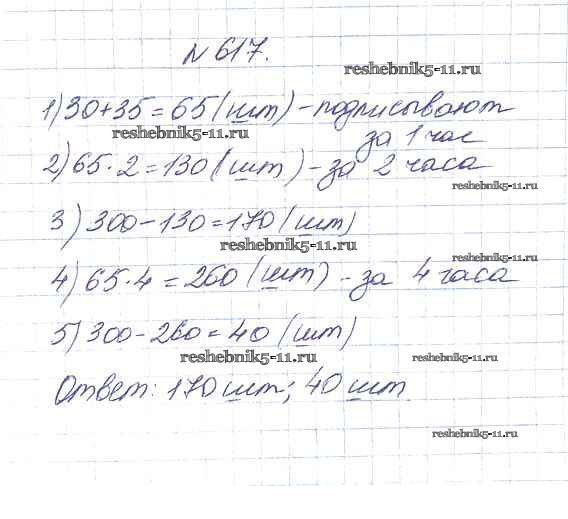 №617.
reshebnik5-11.ru
1) 30+35=65 (шт) - подписывают
reshebnik5-11.ru
за 1 час
2) 65·2=130 (шт) - за 2 часа
reshebnik5-11.ru
3) 300-130=170 (шт)
reshebnik5-11.ru
reshebnik5-11.ru
4) 65·4=260 (шт) - за 4 часа
5) 300-260=40 (шт)
reshebnik5-11.ru
reshebnik5-11.ru
Ответ: 170 шт; 40 шт.
reshebnik5-11.ru